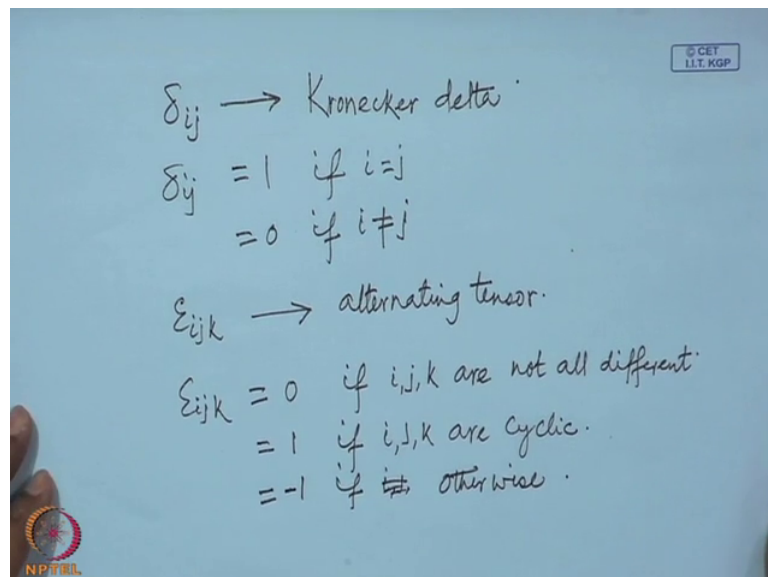 © CET
I.I.T. KGP
δij → Kronecker delta.
δij = 1 if i=j
= 0 if i≠j
εijk → alternating tensor.
εijk = 0 if i,j,k are not all different.
= 1 if i,j,k are cyclic.
= -1 if otherwise.
NPTEL